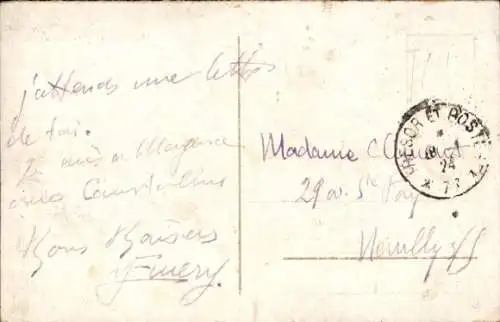 j'attends une lettre
de toi.
Je suis a Mayence
avec
Bons Baisers
TRESOR ET POSTES
24
* 77
Madame
29 av. Ste Foy
Neuilly s/S